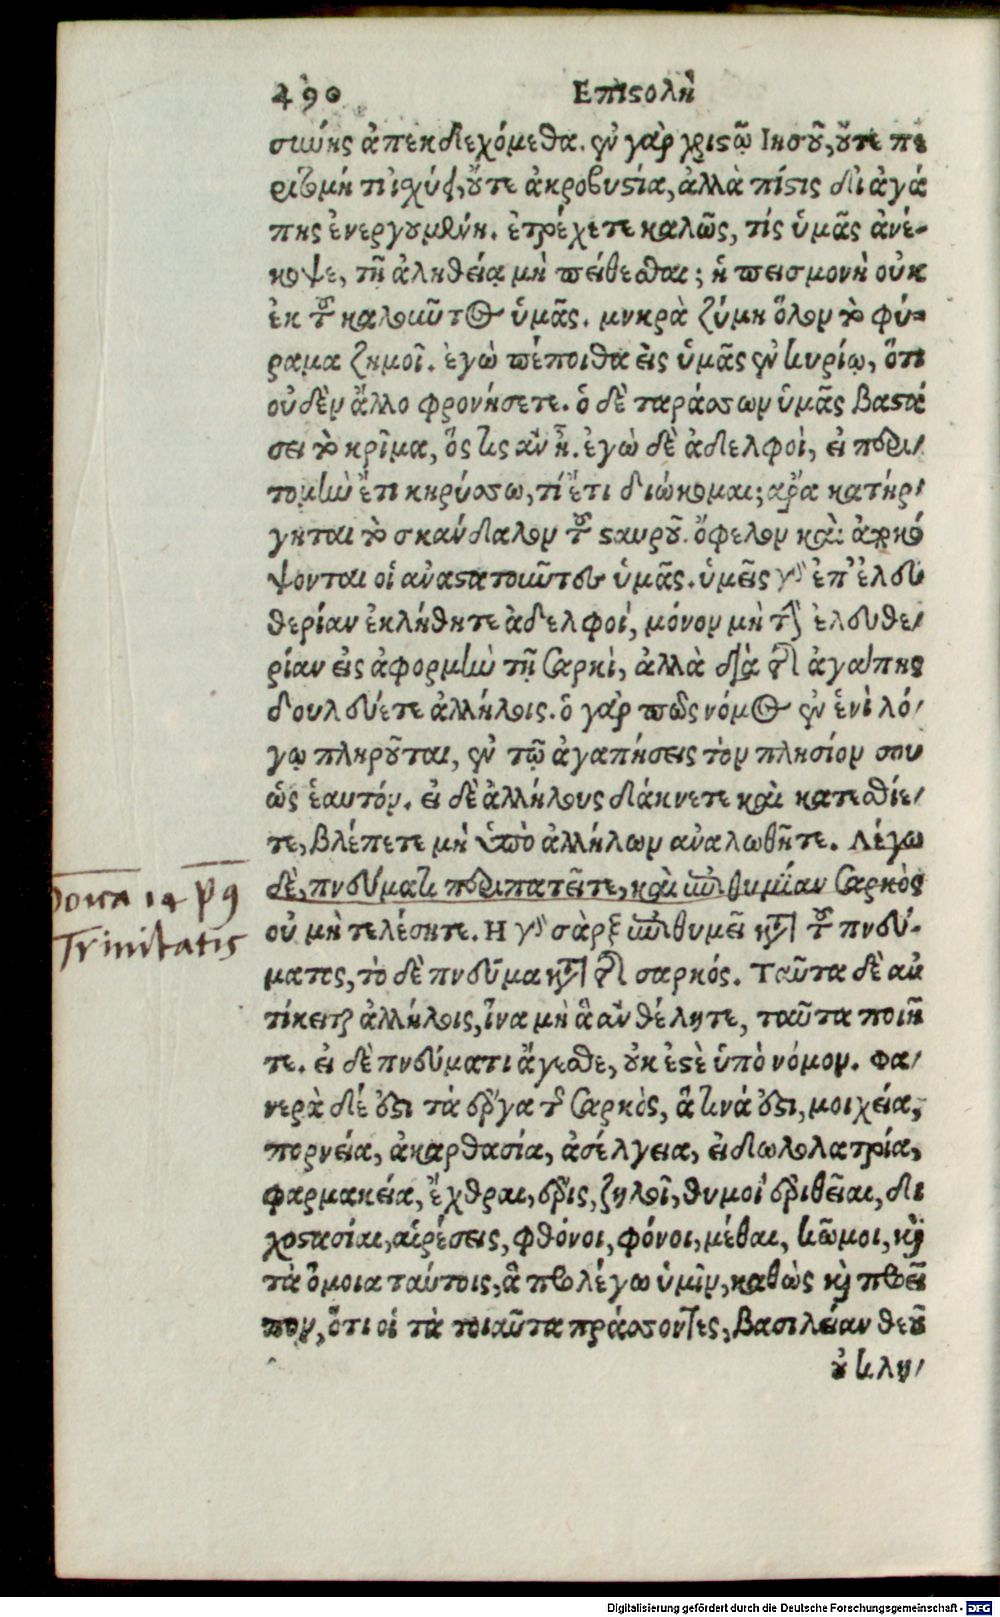 490 Επιϛολὴ
σιώης ἀπεκδεχόμεθα. ἐν γὰρ χριϛῷ Ιησοῦ, οὔτε πε
ριτομή τι ἰσχύει, οὔτε ἀκροβυϛία, ἀλλὰ πίϛις δι ἀγά
πης ἐνεργουμένη. ἐτρέχετε καλῶς, τίς ὑμᾶς ἀνέ-
κοψε, τῇ ἀληθείᾳ μὴ πείθεσθαι; ἡ πεισμονὴ οὐκ
ἐκ τοῦ καλοιῦτος ὑμᾶς. μνκρὰ ζύμη ὅλον τὸ φύ-
ραμα ζημοῖ. ἐγὼ πέποιθα εἰς ὑμᾶς ἐν κυρίῳ, ὅτι
οὐδὲν ἄλλο φρονήσετε. ὁ δὲ ταράσσων ὑμᾶς βαϛά
σει τὸ κρῖμα, ὅς τις ἂν ᾖ. ἐγὼ δὲ ἀδελφοὶ, εἰ περι/
τομιὼ ἔτι κηρύσσω, τί ἔτι διώκομαι; ἄρα κατήρ/
γηται τὸ σκάνδαλον τοῦ ϛαυροῦ. ὄφελον καὶ ἀποκό
ψονται οἱ ἀναϛατοιῦτες ὑμᾶς. ὑμεῖς γὰρ ἐπ' ἐλευ
θερίαν ἐκλήθητε ἀδελφοὶ, μόνον μὴ τὴν ἐλευθε/
ρίαν εἰς ἀφορμιὼ τῇ σαρκὶ, ἀλλὰ διὰ τῆς ἀγάπης
δουλεύετε ἀλλήλοις. ὁ γὰρ πᾶς νόμος ἐν ἑνὶ λό/
γῳ πληροῦται, ἐν τῷ ἀγαπήσεις τὸν πλησίον σου
ὡς ἑαυτόν. εἰ δὲ ἀλλήλους δάκνετε καὶ κατεσθίε/
τε, βλέπετε μὴ ὑπὸ ἀλλήλων ἀναλωθῆτε. Λέγω
δὲ, πνεύματι περιπατεῖτε, καὶ ἐπιθυμίαν σαρκὸς
Dominica 14 post
Trinitatis
οὐ μὴ τελέσητε. Η γὰρ σὰρξ ἐπιθυμεῖ κατὰ τοῦ πνεύ-
ματος, τὸ δὲ πνεῦμα κατὰ τῆς σαρκός. Ταῦτα δὲ αὐ
τίκειται ἀλλήλοις, ἵνα μὴ ἃ ἂν θέλητε, ταῦτα ποιῆ
τε. εἰ δὲ πνεύματι ἄγεσθε, οὐκ ἐϛὲ ὑπὸ νόμον. Φα/
νερὰ δέ ἐϛι τὰ ἔργα τῆς σαρκὸς, ἅτινά ἐϛι, μοιχεία,
πορνεία, ἀκαρθασία, ἀσέλγεια, εἰδωλολατρία,
φαρμακεία, ἔχθραι, ἔρις, ζηλοῖ, θυμοὶ ἐριθεῖαι, δι
χοϛασίαι, αἱρέσεις, φθόνοι, φόνοι, μέθαι, κῶμοι, καὶ
τὰ ὅμοια τούτοις, ἃ προλέγω ὑμῖν, καθὼς καὶ προεῖ
πον, ὅτι οἱ τὰ τοιαῦτα πράσσοντες, βασιλείαν θεοῦ
οὐ κλη/
Digitalisierung gefördert durch die Deutsche Forschungsgemeinschaft - DFG